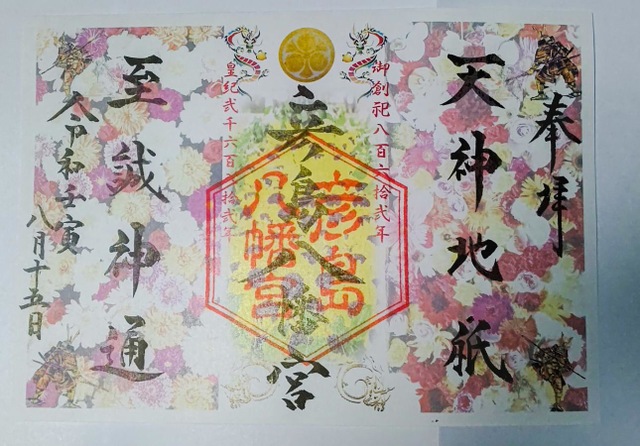 奉拝
天神地祇
御創祀八百六拾弐年
彦島八幡宮
彦島八幡宮
皇紀弐千六百八拾弐年
至誠神通
令和壬寅
八月十五日